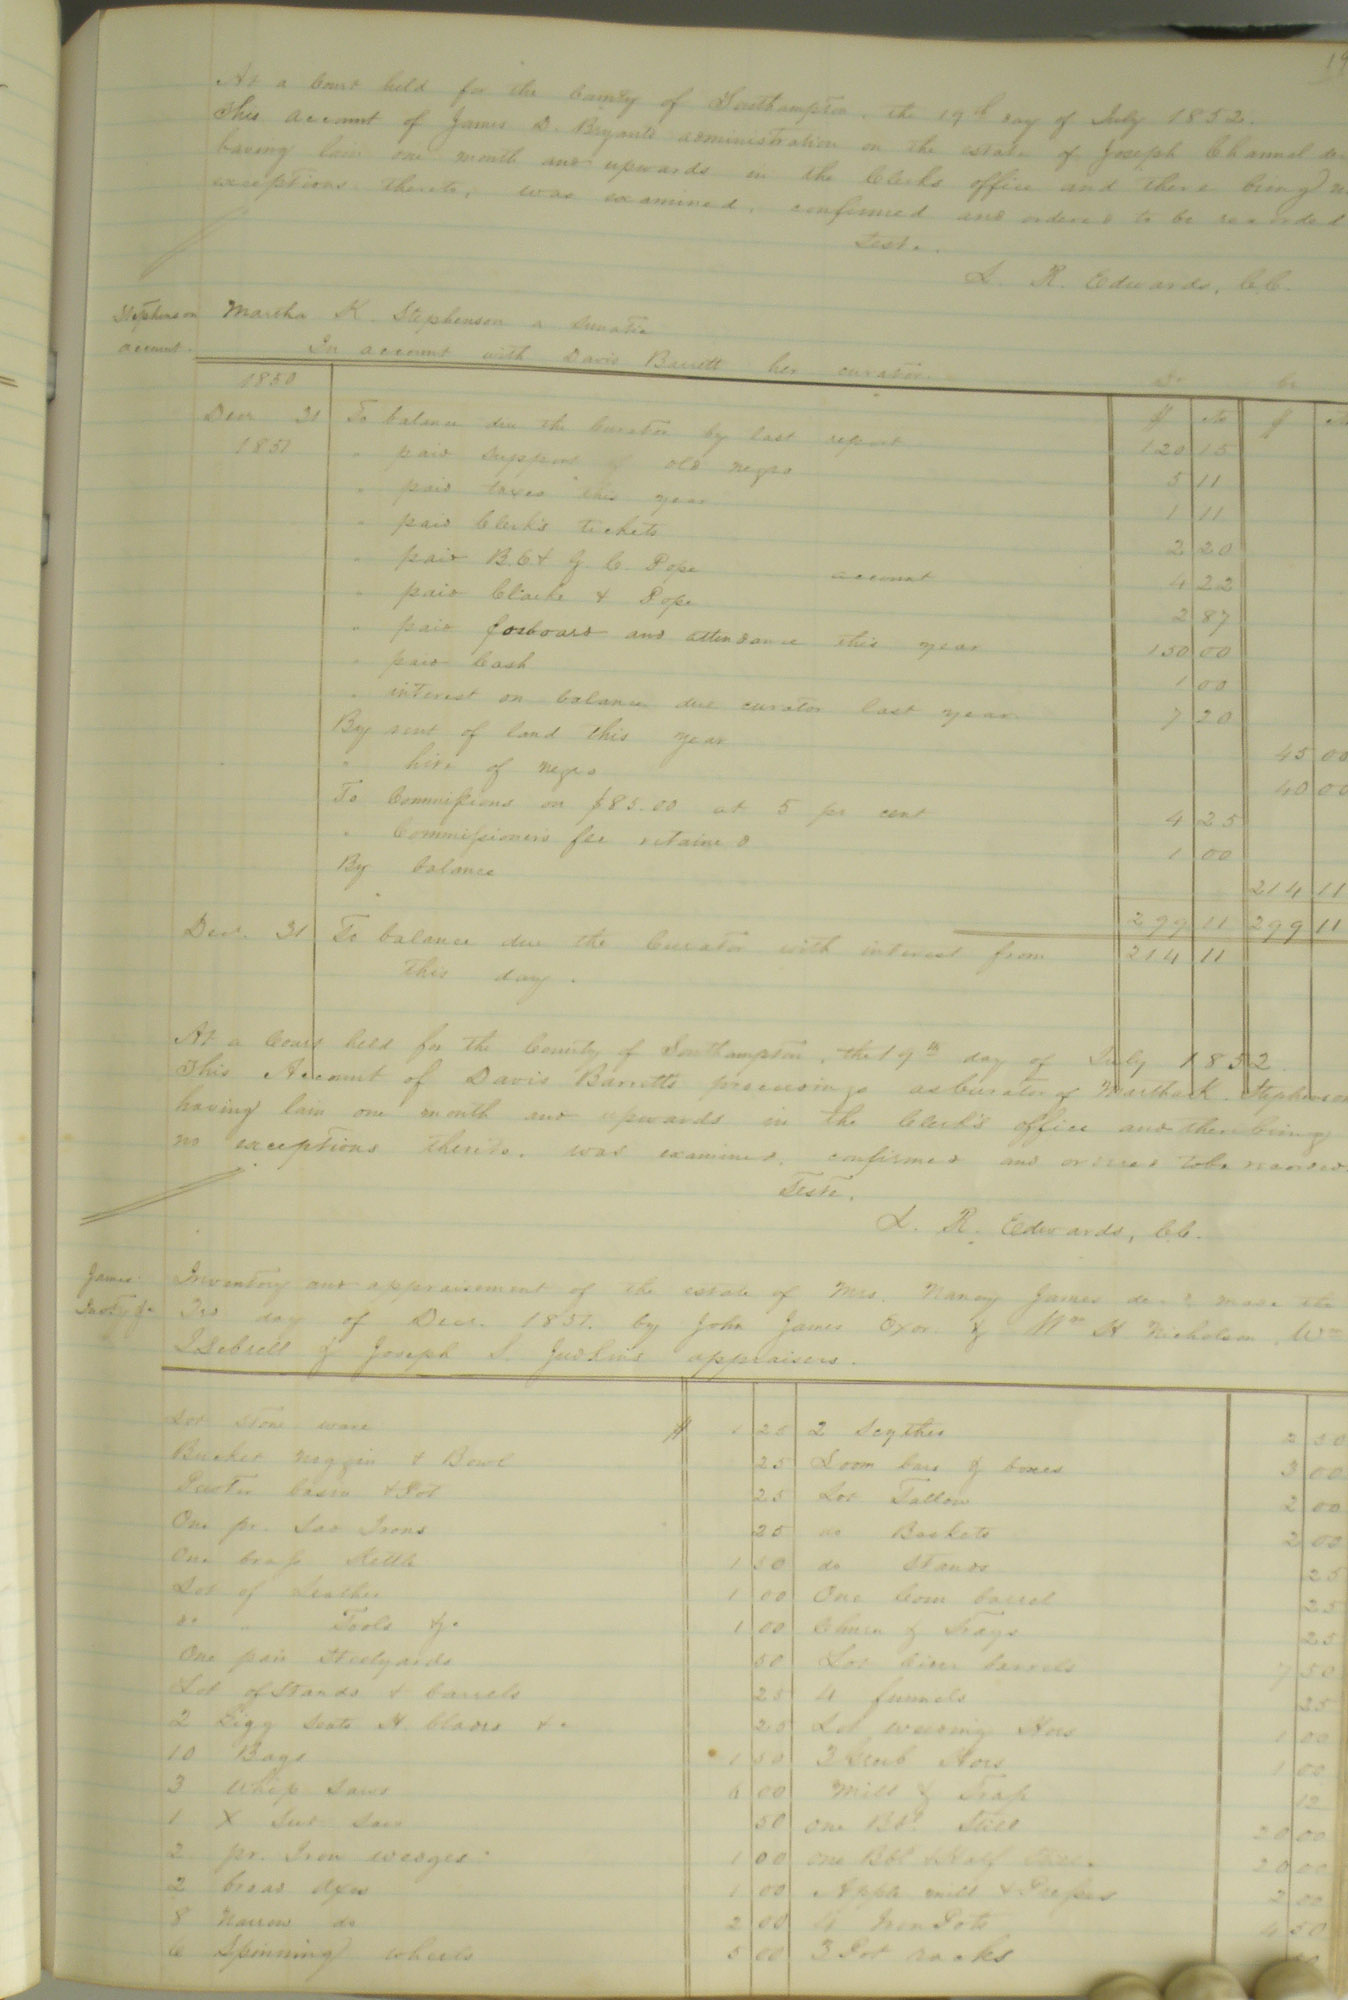 19
At a Court held for the County of Southampton, the 19th day of July 1852.
This account of James D. Bryants administration on the estate of Joseph Channel
having lain one month and upwards in the Clerks office and there being
exceptions thereto, was examined, confirmed and ordered to be recorded
Teste.
L. R. Edwards, C.C.
Stephenson account.
Martha K. Stephenson a lunatic
In account with Davis Barrett her curator.
1850 Dr Cr
Decr 31 To balance due the Curator by last report 120 15
1851 " paid support of old negro 5 11
" paid taxes this year 1 11
" paid Clerk's tickets 2 20
" paid B.C & G. C. Pope account 4 22
" paid Clarke & Pope 2 87
" paid for board and attendance this year 150 00
" paid Cash 1 00
" interest on balance due curator last year 7 20
By rent of land this year 45 00
" hire of negro 40 00
To Commissions on $85.00 at 5 pr cent 4 25
" Commissioner's fee retained 1 00
By balance 214 11
299 11 299 11
Decr. 31 To balance due the Curator with interest from 214 11
this day.
At a Court held for the County of Southampton, the 19th day of July 1852.
This Account of Davis Barretts proceedings as Curator of Martha K. Stephenson
having lain one month and upwards in the Clerk's office and there being
no exceptions thereto, was examined, confirmed and ordered to be recorded
Teste.
L. R. Edwards, C.C.
James
Invty &c
Inventory and appraisement of the estate of Mrs. Nancy James decd made the
day of Decr. 1851. by John James Exor. & Wm H Nicholson, Wm
J Sebrell & Joseph S. Judkins appraisers.
Lot Stone ware $ 1 25 2 Scythes 2 50
Bucket noggin & Bowl 25 Loom bars & boxes 3 00
Pewter basin & Pot 25 Lot Tallow 2 00
One pr. Sad Irons 25 do Baskets 2 00
One brass Kettle 1 50 do Stands 25
Lot of Leather 1 00 One Corn barrel 25
do " Tools &c 1 00 Churn & Trays 25
One pair Steelyards 50 Lot cider barrels 7 50
Lot of Stands & barrels 25 4 funnels 25
2 Gigg seats H. blades &c 25 Lot weeding Hoes 1 00
10 Bags 1 50 3 Grub Hoes 1 00
3 Whip Saws 6 00 Mill & Trap 12
1 X Cut Saw 50 one Bbl Still 20 00
2 pr. Iron wedges 1 00 one Bbl & Half 20 00
2 broad Axes 1 00 Apple mill & Presses 2 00
8 Narrow do 2 00 4 Iron Pots 4 50
6 Spinning wheels 5 00 3 Pot racks